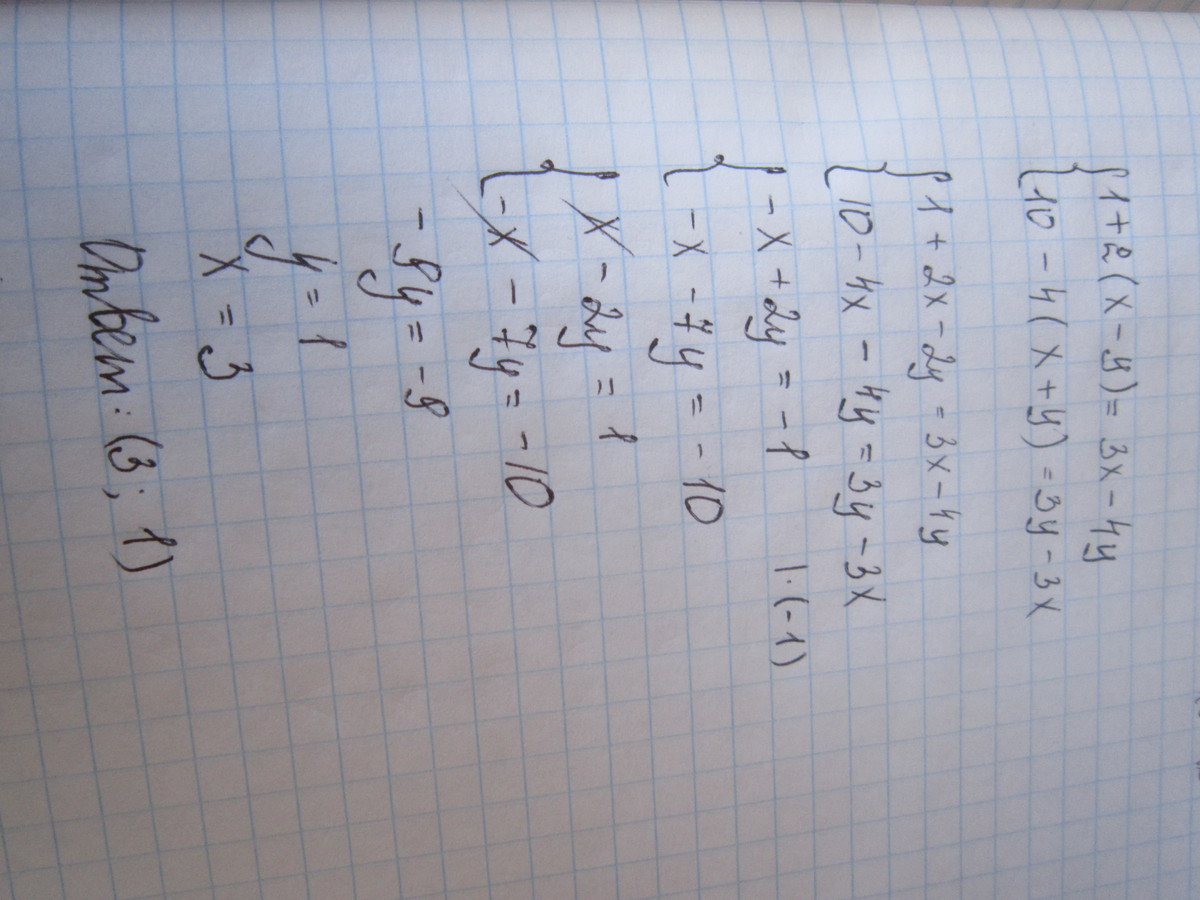 1 + 2 ( x - y ) = 3x - 4y
10 - 4 ( x + y ) = 3y - 3x
1 + 2x - 2y = 3x - 4y
10 - 4x - 4y = 3y - 3x
- x + 2y = - 1 | · (-1)
- x - 7y = - 10
x - 2y = 1
- x - 7y = - 10
- 9y = - 9
y = 1
x = 3
Ответ: (3 ; 1)